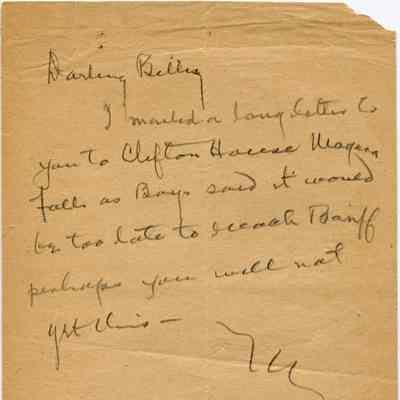 Darling Billy
I mailed a long letter to
you to Clifton House Niagara
Falls as Bays said it would
be too late to reach Banff
perhaps you will not
get this –